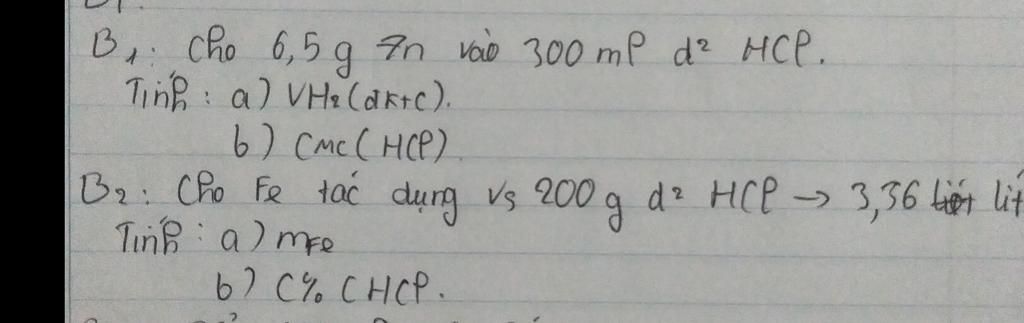 B1: Cho 6,5 g Zn vào 300 ml d² HCl.
Tính: a) VH2(đktc).
b) CMC(HCl)
B2: Cho Fe tác dụng vs 200 g d² HCl → 3,36 lít
Tính: a) mFe
b) C% CHCl.